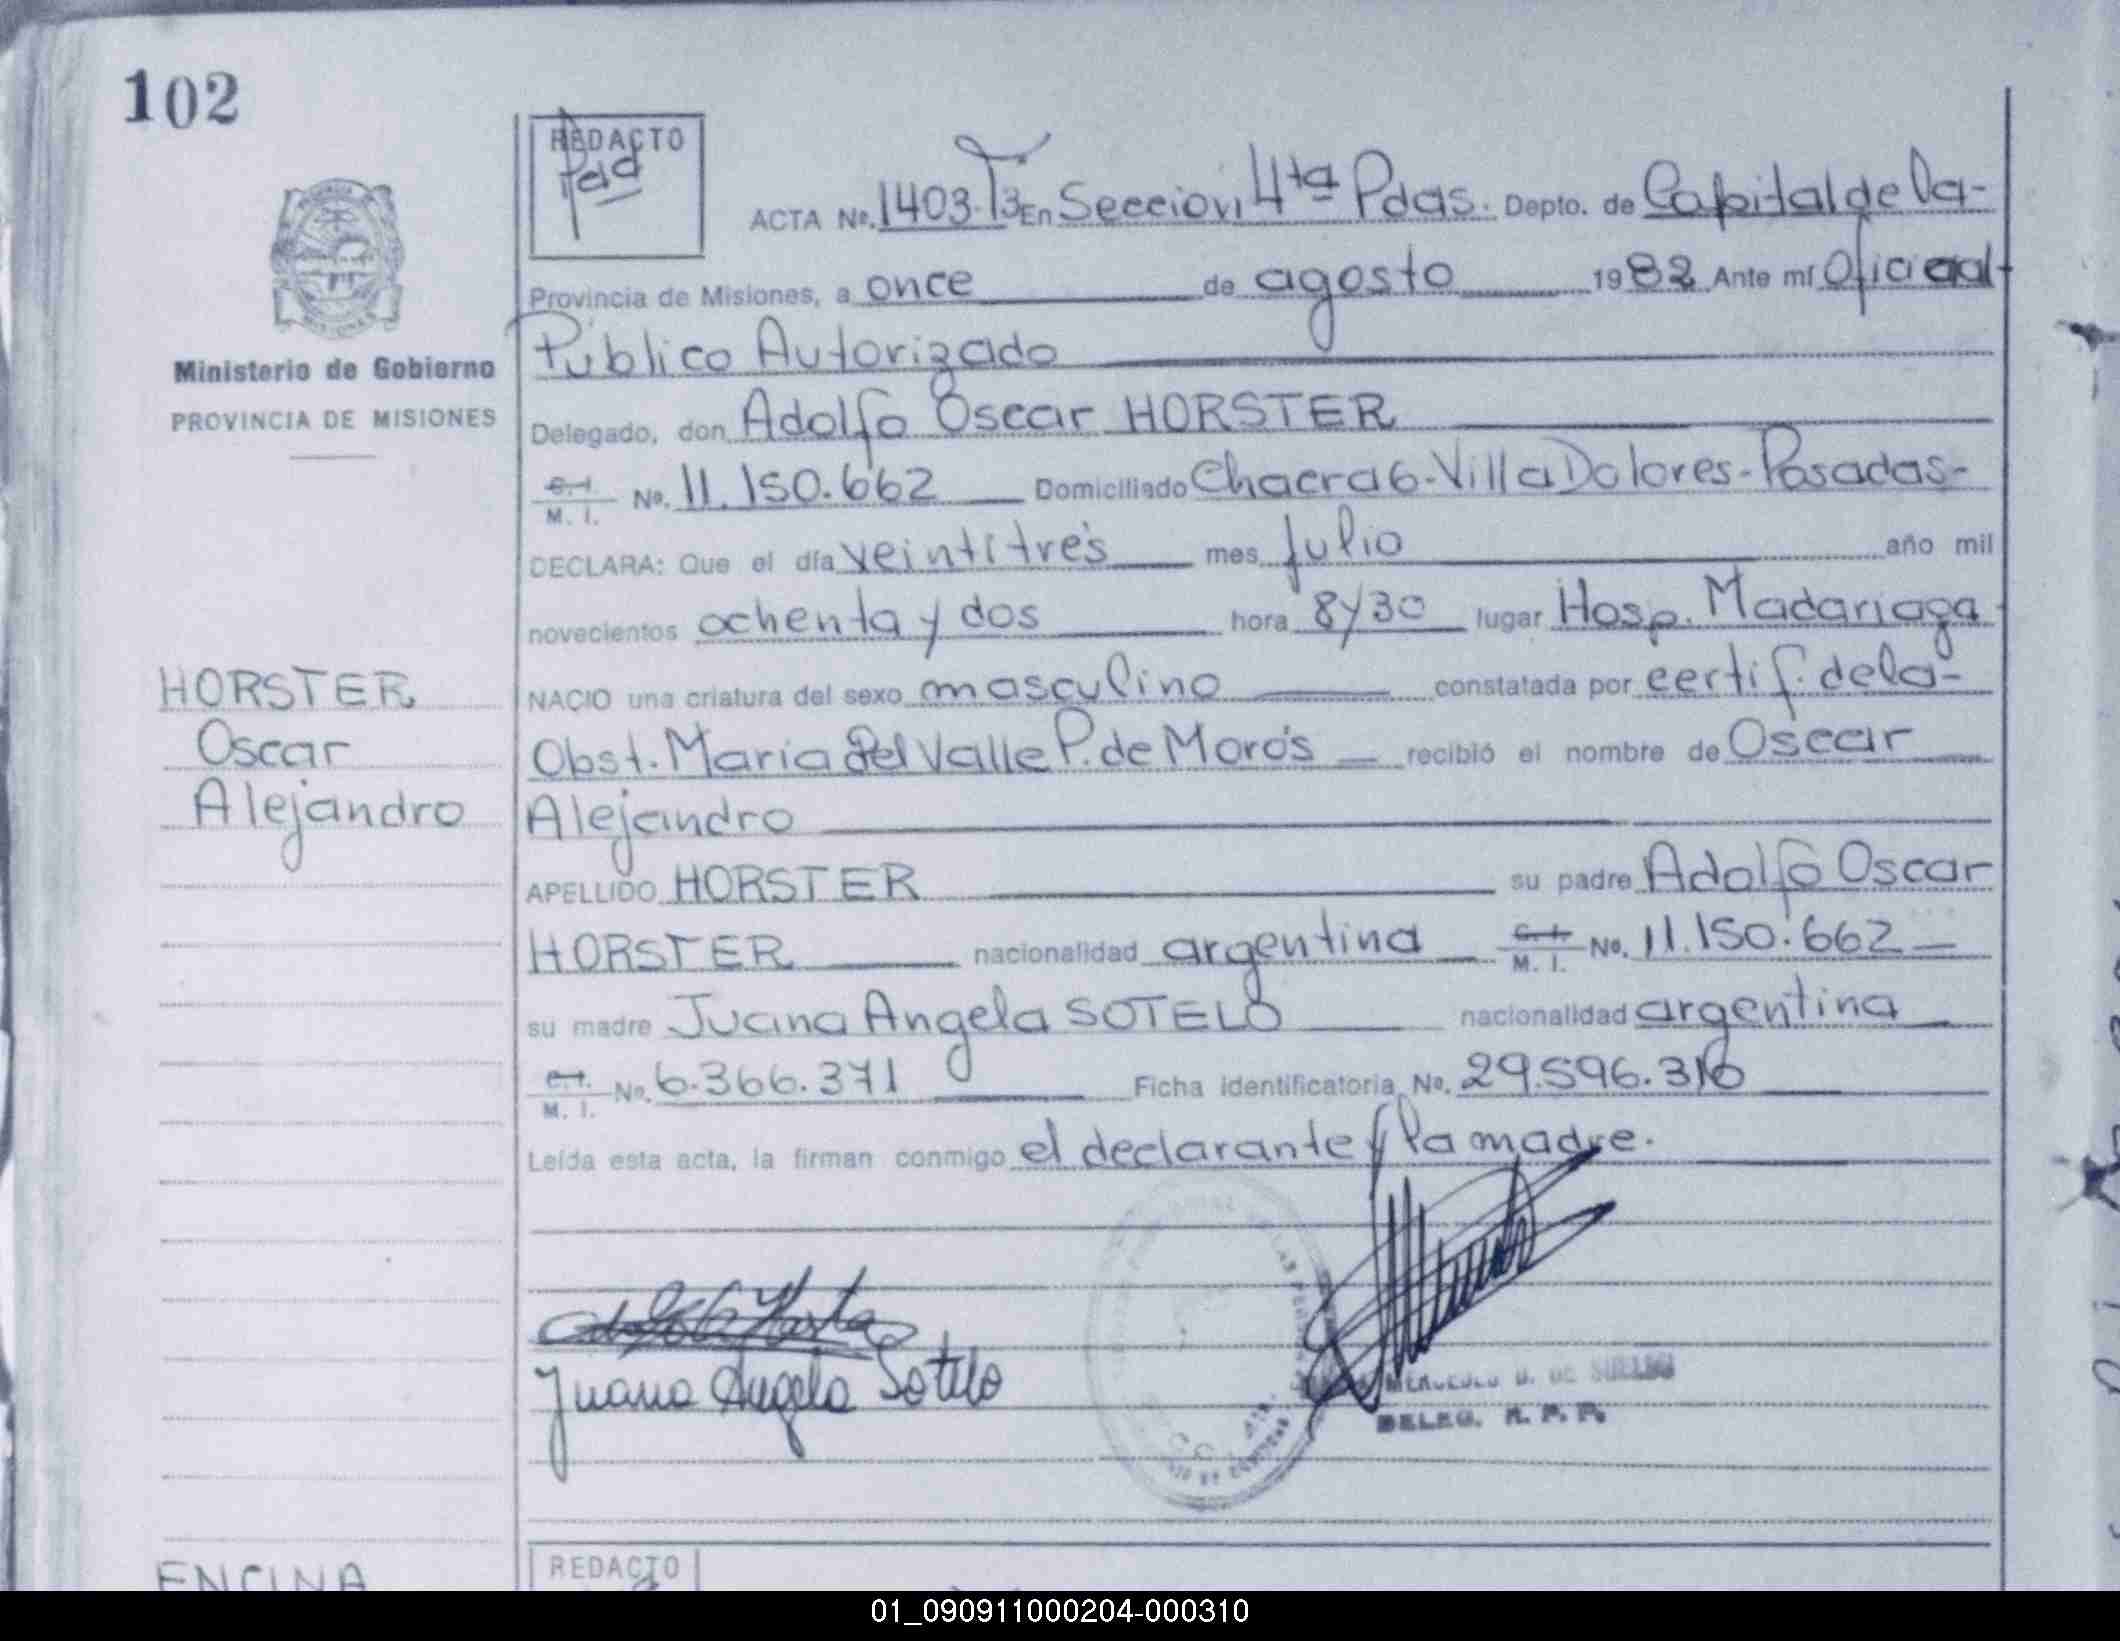 102
REDACTO
ACTA No. 1403-T3 En Sección 4ta Pdas. Depto. de Capital de la-
Provincia de Misiones, a once de agosto 1982 Ante mí Oficial
Público Autorizado
Ministerio de Gobierno
PROVINCIA DE MISIONES
Delegado, don Adolfo Oscar HORSTER
C. I. M. I. No. 11.150.662 Domiciliado Chacra 6-Villa Dolores-Posadas-
DECLARA: Que el día veintitrés mes julio año mil
novecientos ochenta y dos hora 8y30 lugar Hosp. Madariaga
HORSTER
Oscar
Alejandro
NACIO una criatura del sexo masculino constatada por certif. de la-
Obst. María del Valle P. de Morós recibió el nombre de Oscar
Alejandro
APELLIDO HORSTER su padre Adolfo Oscar
HORSTER nacionalidad argentina C. I. M. I. No. 11.150.662
su madre Juana Angela SOTELO nacionalidad argentina
C. I. M. I. No. 6.366.371 Ficha identificatoria No. 29.596.316
Leída esta acta, la firman conmigo el declarante y la madre.
Juana Angela Sotelo
DELEG. R. P. P.
ENCINA
REDACTO
01_090911000204-000310